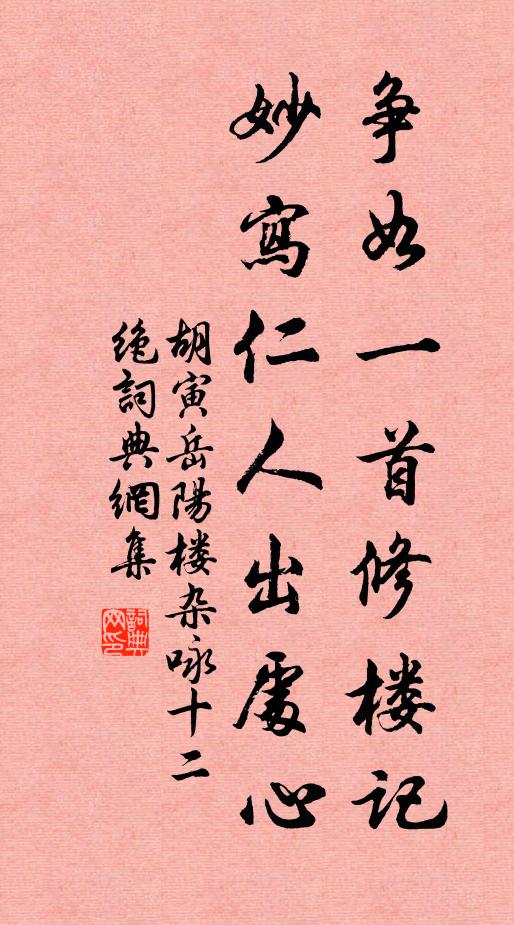 争如一首修楼记
妙寫仁人出處心
胡寅岳陽楼杂咏十二
绝詞典網集
詞典
网印